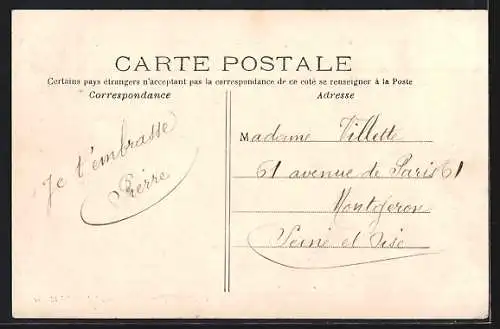 CARTE POSTALE
Certains pays étrangers n'acceptant pas la correspondance de ce coté se renseigner à la Poste
Correspondance
Je t'embrasse
Pierre
Adresse
Madame Villette
61 avenue de Paris 61
Montgeron
Seine et Oise